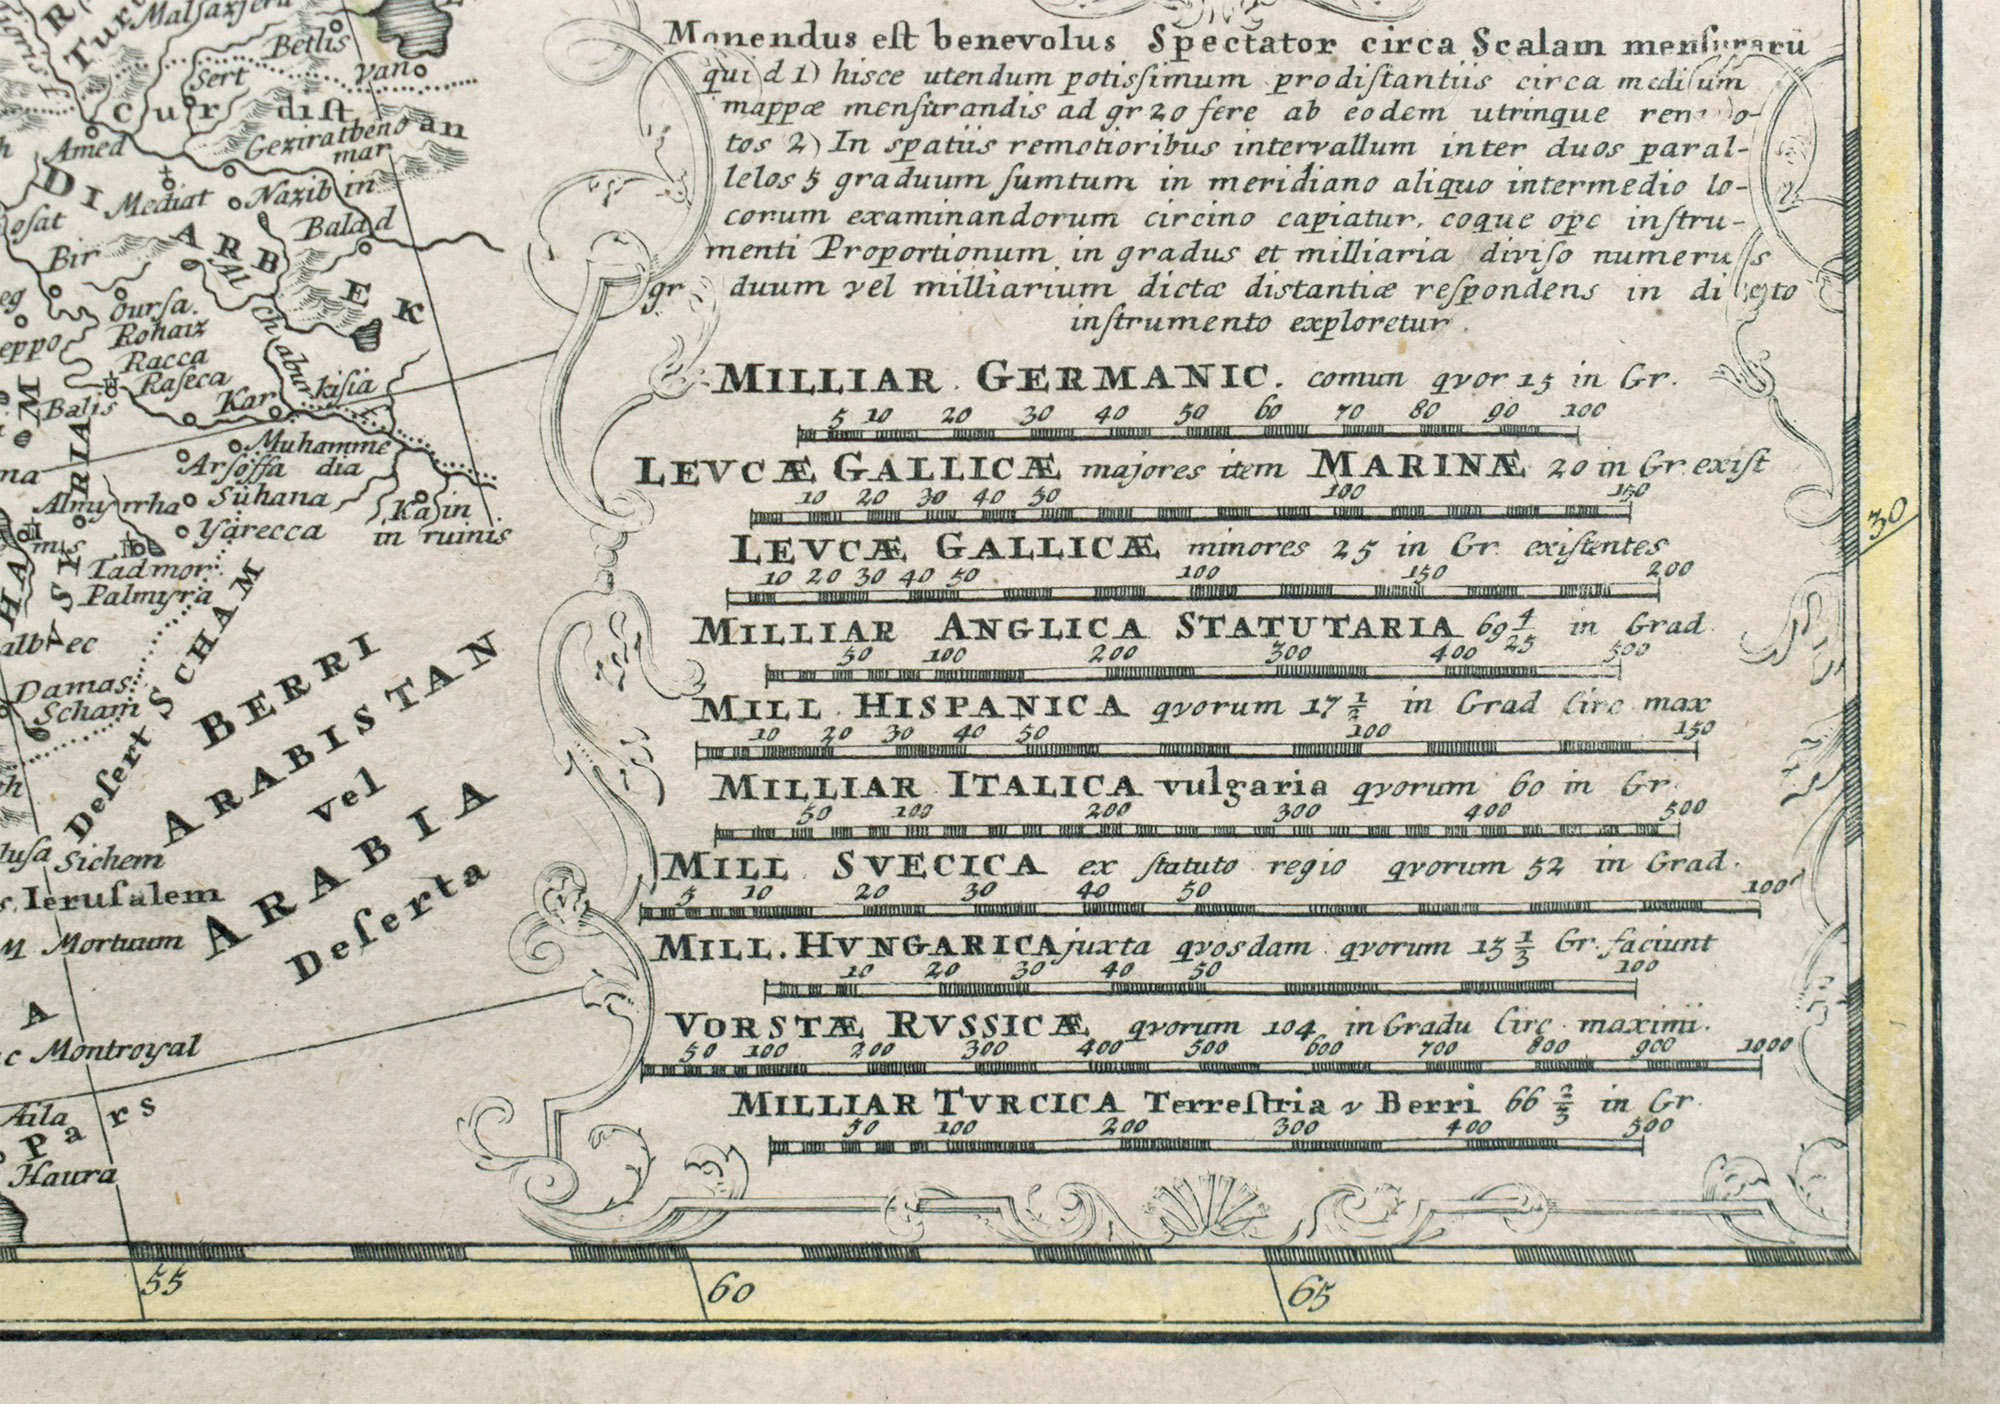 Malsaxjera
Betlis
Sert
van
Cur dist an
Geziratbeno
mar
Amed
DI
Mediat
Nazib in
osat
Balad
ARB EK
Bir
Al Chabur
oursa.
Rohaiz
eppo
Racca
Raseca
kisia
Kar
Balis
Muhamme
dia
Arsoffa
Sühana
Almyrrha
Yarecca
Ka in
in ruinis
Tadmor.
Palmyra
Damas.
Scham
Desert SCHAM
BERRI
ARABISTAN
vel
ARABIA
Deserta
Sichem
s. Ierusalem
M Mortuum
A
c Montroyal
Aila
Pars
Haura
Monendus est benevolus Spectator circa Scalam mensurarū
quid 1) hisce utendum potissimum pro distantiis circa medium
mappæ mensurandis ad gr 20 fere ab eodem utrinque remo-
tos 2) In spatiis remotioribus intervallum inter duos paral-
lelos 5 graduum sumtum in meridiano aliquo intermedio lo-
corum examinandorum circino capiatur, eoque ope instru-
menti Proportionum in gradus et milliaria diviso numerus
gr duum vel milliarium dictæ distantiæ respondens in dicto
instrumento exploretur.
MILLIAR. GERMANIC. comun qvor 15 in Gr.
5 10 20 30 40 50 60 70 80 90 100
LEVCÆ GALLICÆ majores item MARINÆ 20 in Gr. exist
10 20 30 40 50 100 150
LEVCÆ GALLICÆ minores 25 in Gr. existentes
10 20 30 40 50 100 150 200
MILLIAR ANGLICA STATUTARIA 69 4/25 in Grad
50 100 200 300 400 500
MILL. HISPANICA qvorum 17 1/2 in Grad Circ max
10 20 30 40 50 100 150
MILLIAR ITALICA vulgaria qvorum 60 in Gr.
50 100 200 300 400 500
MILL. SVECICA ex statuto regio qvorum 52 in Grad.
5 10 20 30 40 50 100
MILL. HVNGARICA juxta qvosdam qvorum 13 1/3 Gr. faciunt
10 20 30 40 50 100
VORSTÆ RVSSICÆ qvorum 104 in Gradu Circ. maximi.
50 100 200 300 400 500 600 700 800 900 1000
MILLIAR TVRCICA Terrestria v Berri 66 2/3 in Gr.
50 100 200 300 400 500
30
55 60 65